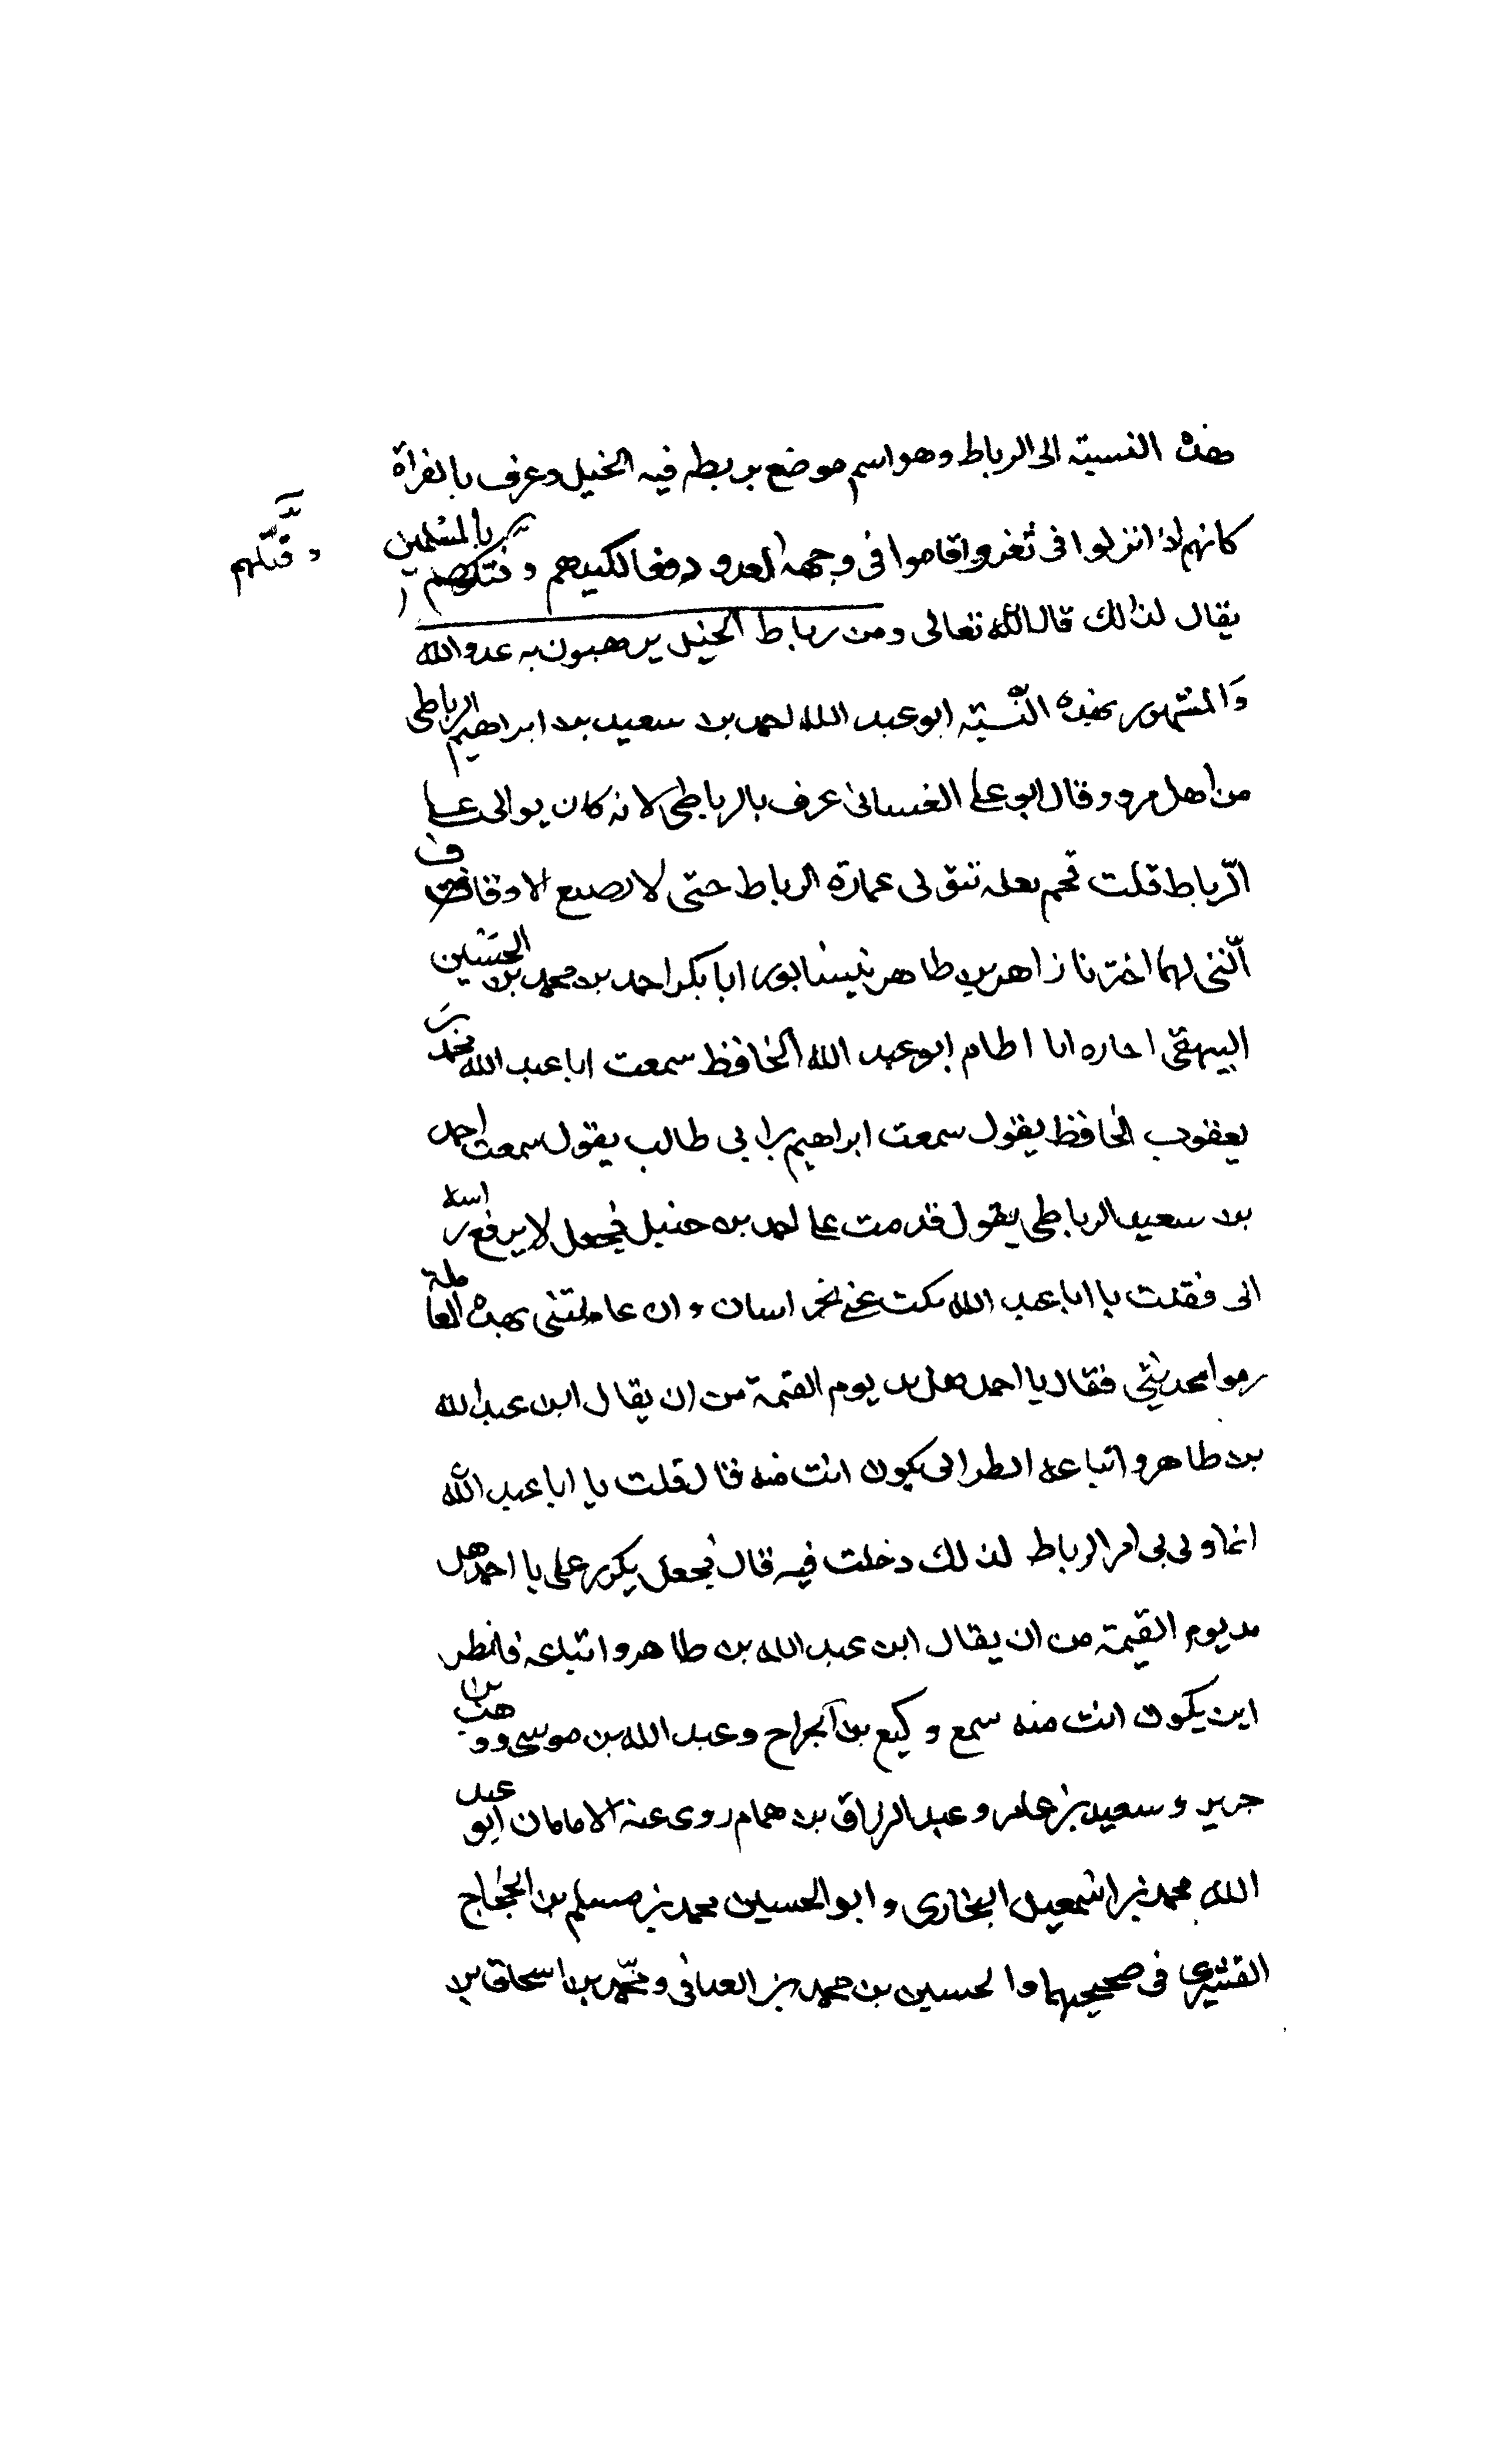 هذه النسبة الى الرباط وهو اسم موضع يربط فيه الخيل وعرف بالغزاة
كانهم اذا نزلوا فى ثغر واقاموا فى وجهه العدو دفعا لكيدهم و فتكهم بالمسلمين
و قتلهم
يقال لذلك قال الله تعالى ومن رباط الخيل يرهبون به عدو الله
والمشهور بهذه النسبة ابو عبد الله احمد بن سعيد بن ابراهيم الرباطى
من اهل مرو وقال ابو على الغسانى عرف بالرباطى لانه كان يوالى على
الرباط قلت لعله تتولى عمارة الرباط حتى لا يضيع الاوقاف
التى لها اخبرنا زاهر بن طاهر بنيسابور ابا بكر احمد بن محمد بن الحسين
البيهقى اجازه انا امام ابو عبد الله الحافظ سمعت ابا عبد الله محمد بن
يعقوب الحافظ يقول سمعت ابراهيم بن ابى طالب يقول سمعت احمد
بن سعيد الرباطى يقول قدمت على احمد بن حنبل فجعل لا يرفع راسه
الى فقلت يا ابا عبد الله يكتب عنى بخراسان وان عاملتنى بهذه المعاملة
رموا بحديثى فقال يا احمد هل بد يوم القيمة من ان يقال ابن عبد الله
بن طاهر واتباعه انظر انى يكون انت منه قال قلت يا ابا عبد الله
انما ولى بى امر الرباط لذلك دخلت فيه قال فجعل يكرر على يا احمد هل
بد يوم القيمة من ان يقال ابن عبد الله بن طاهر واتباعه فانظر
اين يكون انت منه سمع وكيع بن الجراح وعبد الله بن موسى ووهب بن
جرير و سعيد بن عامر وعبد الرزاق بن همام روى عنه الامامان ابو عبد
الله محمد بن اسمعيل البخارى و ابو الحسين محمد بن مسلم بن الحجاج
القشيرى فى صحيحهما والحسين بن محمد بن ومحمد بن اسحاق بن